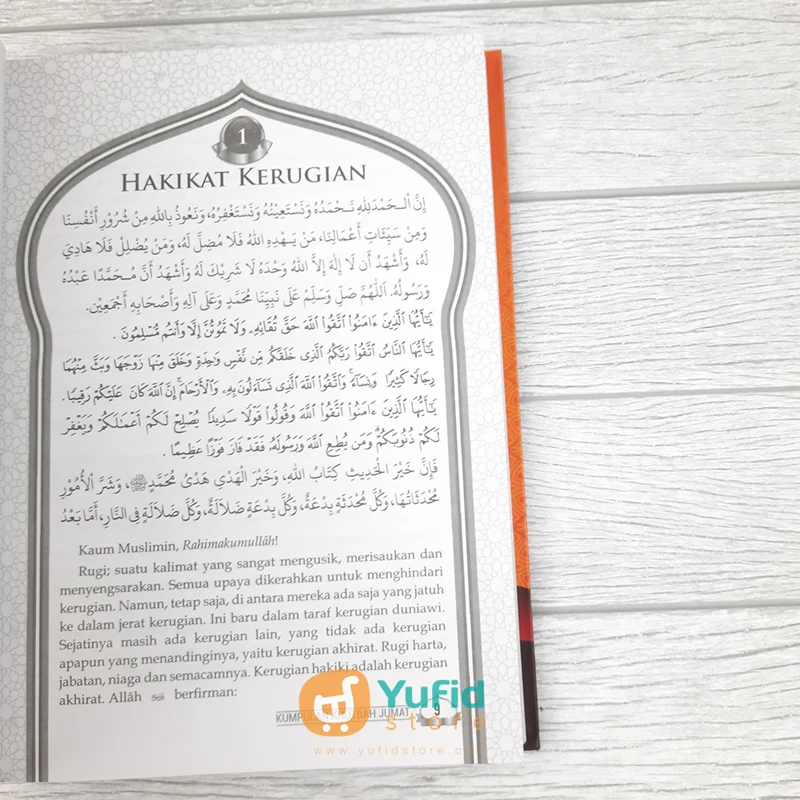 1
HAKIKAT KERUGIAN
إِنَّ الْـحَمْدَ لِلّٰهِ نَـحْمَدُهُ وَنَسْتَعِيْنُهُ وَنَسْتَغْفِرُهُ، وَنَعُوْذُ بِاللهِ مِنْ شُرُوْرِ أَنْفُسِنَا
وَمِنْ سَيِّئَاتِ أَعْمَالِنَا، مَنْ يَـهْدِهِ اللهُ فَلَا مُضِلَّ لَهُ، وَمَنْ يُضْلِلْ فَلَا هَادِيَ
لَهُ، وَأَشْهَدُ أَن لَا إِلٰهَ إِلاَّ اللهُ وَحْدَهُ لَا شَرِيْكَ لَهُ وَأَشْهَدُ أَنَّ مُـحَمَّدًا عَبْدُهُ
وَرَسُولُهُ. اَللّٰهُمَّ صَلِّ وَسَلِّمْ عَلَى نَبِيِّنَا مُحَمَّدٍ وَعَلَى آلِهِ وَأَصْحَابِهِ أَجْمَعِيْن.
يَٰٓأَيُّهَا ٱلَّذِينَ ءَامَنُوا۟ ٱتَّقُوا۟ ٱللَّهَ حَقَّ تُقَاتِهِۦ وَلَا تَمُوتُنَّ إِلَّا وَأَنتُم مُّسْلِمُونَ .
يَٰٓأَيُّهَا ٱلنَّاسُ ٱتَّقُوا۟ رَبَّكُمُ ٱلَّذِى خَلَقَكُم مِّن نَّفْسٍ وَٰحِدَةٍ وَخَلَقَ مِنْهَا زَوْجَهَا وَبَثَّ مِنْهُمَا
رِجَالًا كَثِيرًا وَنِسَآءً ۚ وَٱتَّقُوا۟ ٱللَّهَ ٱلَّذِى تَسَآءَلُونَ بِهِۦ وَٱلْأَرْحَامَ ۚ إِنَّ ٱللَّهَ كَانَ عَلَيْكُمْ رَقِيبًا .
يَٰٓأَيُّهَا ٱلَّذِينَ ءَامَنُوا۟ ٱتَّقُوا۟ ٱللَّهَ وَقُولُوا۟ قَوْلًا سَدِيدًا يُصْلِحْ لَكُمْ أَعْمَٰلَكُمْ وَيَغْفِرْ
لَكُمْ ذُنُوبَكُمْ ۗ وَمَن يُطِعِ ٱللَّهَ وَرَسُولَهُۥ فَقَدْ فَازَ فَوْزًا عَظِيمًا .
فَإِنَّ خَيْرَ الْحَدِيثِ كِتَابُ اللهِ، وَخَيْرَ الْهَدْيِ هَدْيُ مُحَمَّدٍ ﷺ، وَشَرَّ الْأُمُوْرِ
مُحْدَثَاتُهَا، وَكُلَّ مُحْدَثَةٍ بِدْعَةٌ، وَكُلَّ بِدْعَةٍ ضَلَالَةٌ، وَكُلَّ ضَلَالَةٍ فِى النَّارِ، أَمَّا بَعْدُ
Kaum Muslimin, Rahimakumullâh!
Rugi; suatu kalimat yang sangat mengusik, merisaukan dan
menyengsarakan. Semua upaya dikerahkan untuk menghindari
kerugian. Namun, tetap saja, di antara mereka ada saja yang jatuh
ke dalam jerat kerugian. Ini baru dalam taraf kerugian duniawi.
Sejatinya masih ada kerugian lain, yang tidak ada kerugian
apapun yang menandinginya, yaitu kerugian akhirat. Rugi harta,
jabatan, niaga dan semacamnya. Kerugian hakiki adalah kerugian
akhirat. Allâh berfirman:
KUMPULAN KHUTBAH JUMAT 9
Yufid
store
www.yufidstore.com